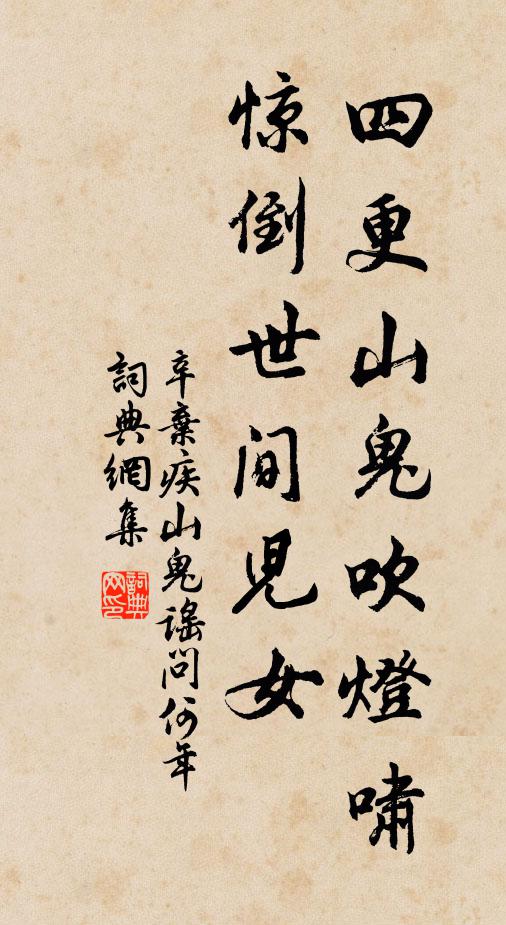 四更山鬼吹燈嘯
惊倒世间兒女
辛棄疾山鬼謠問何年
詞典網集
詞典网印